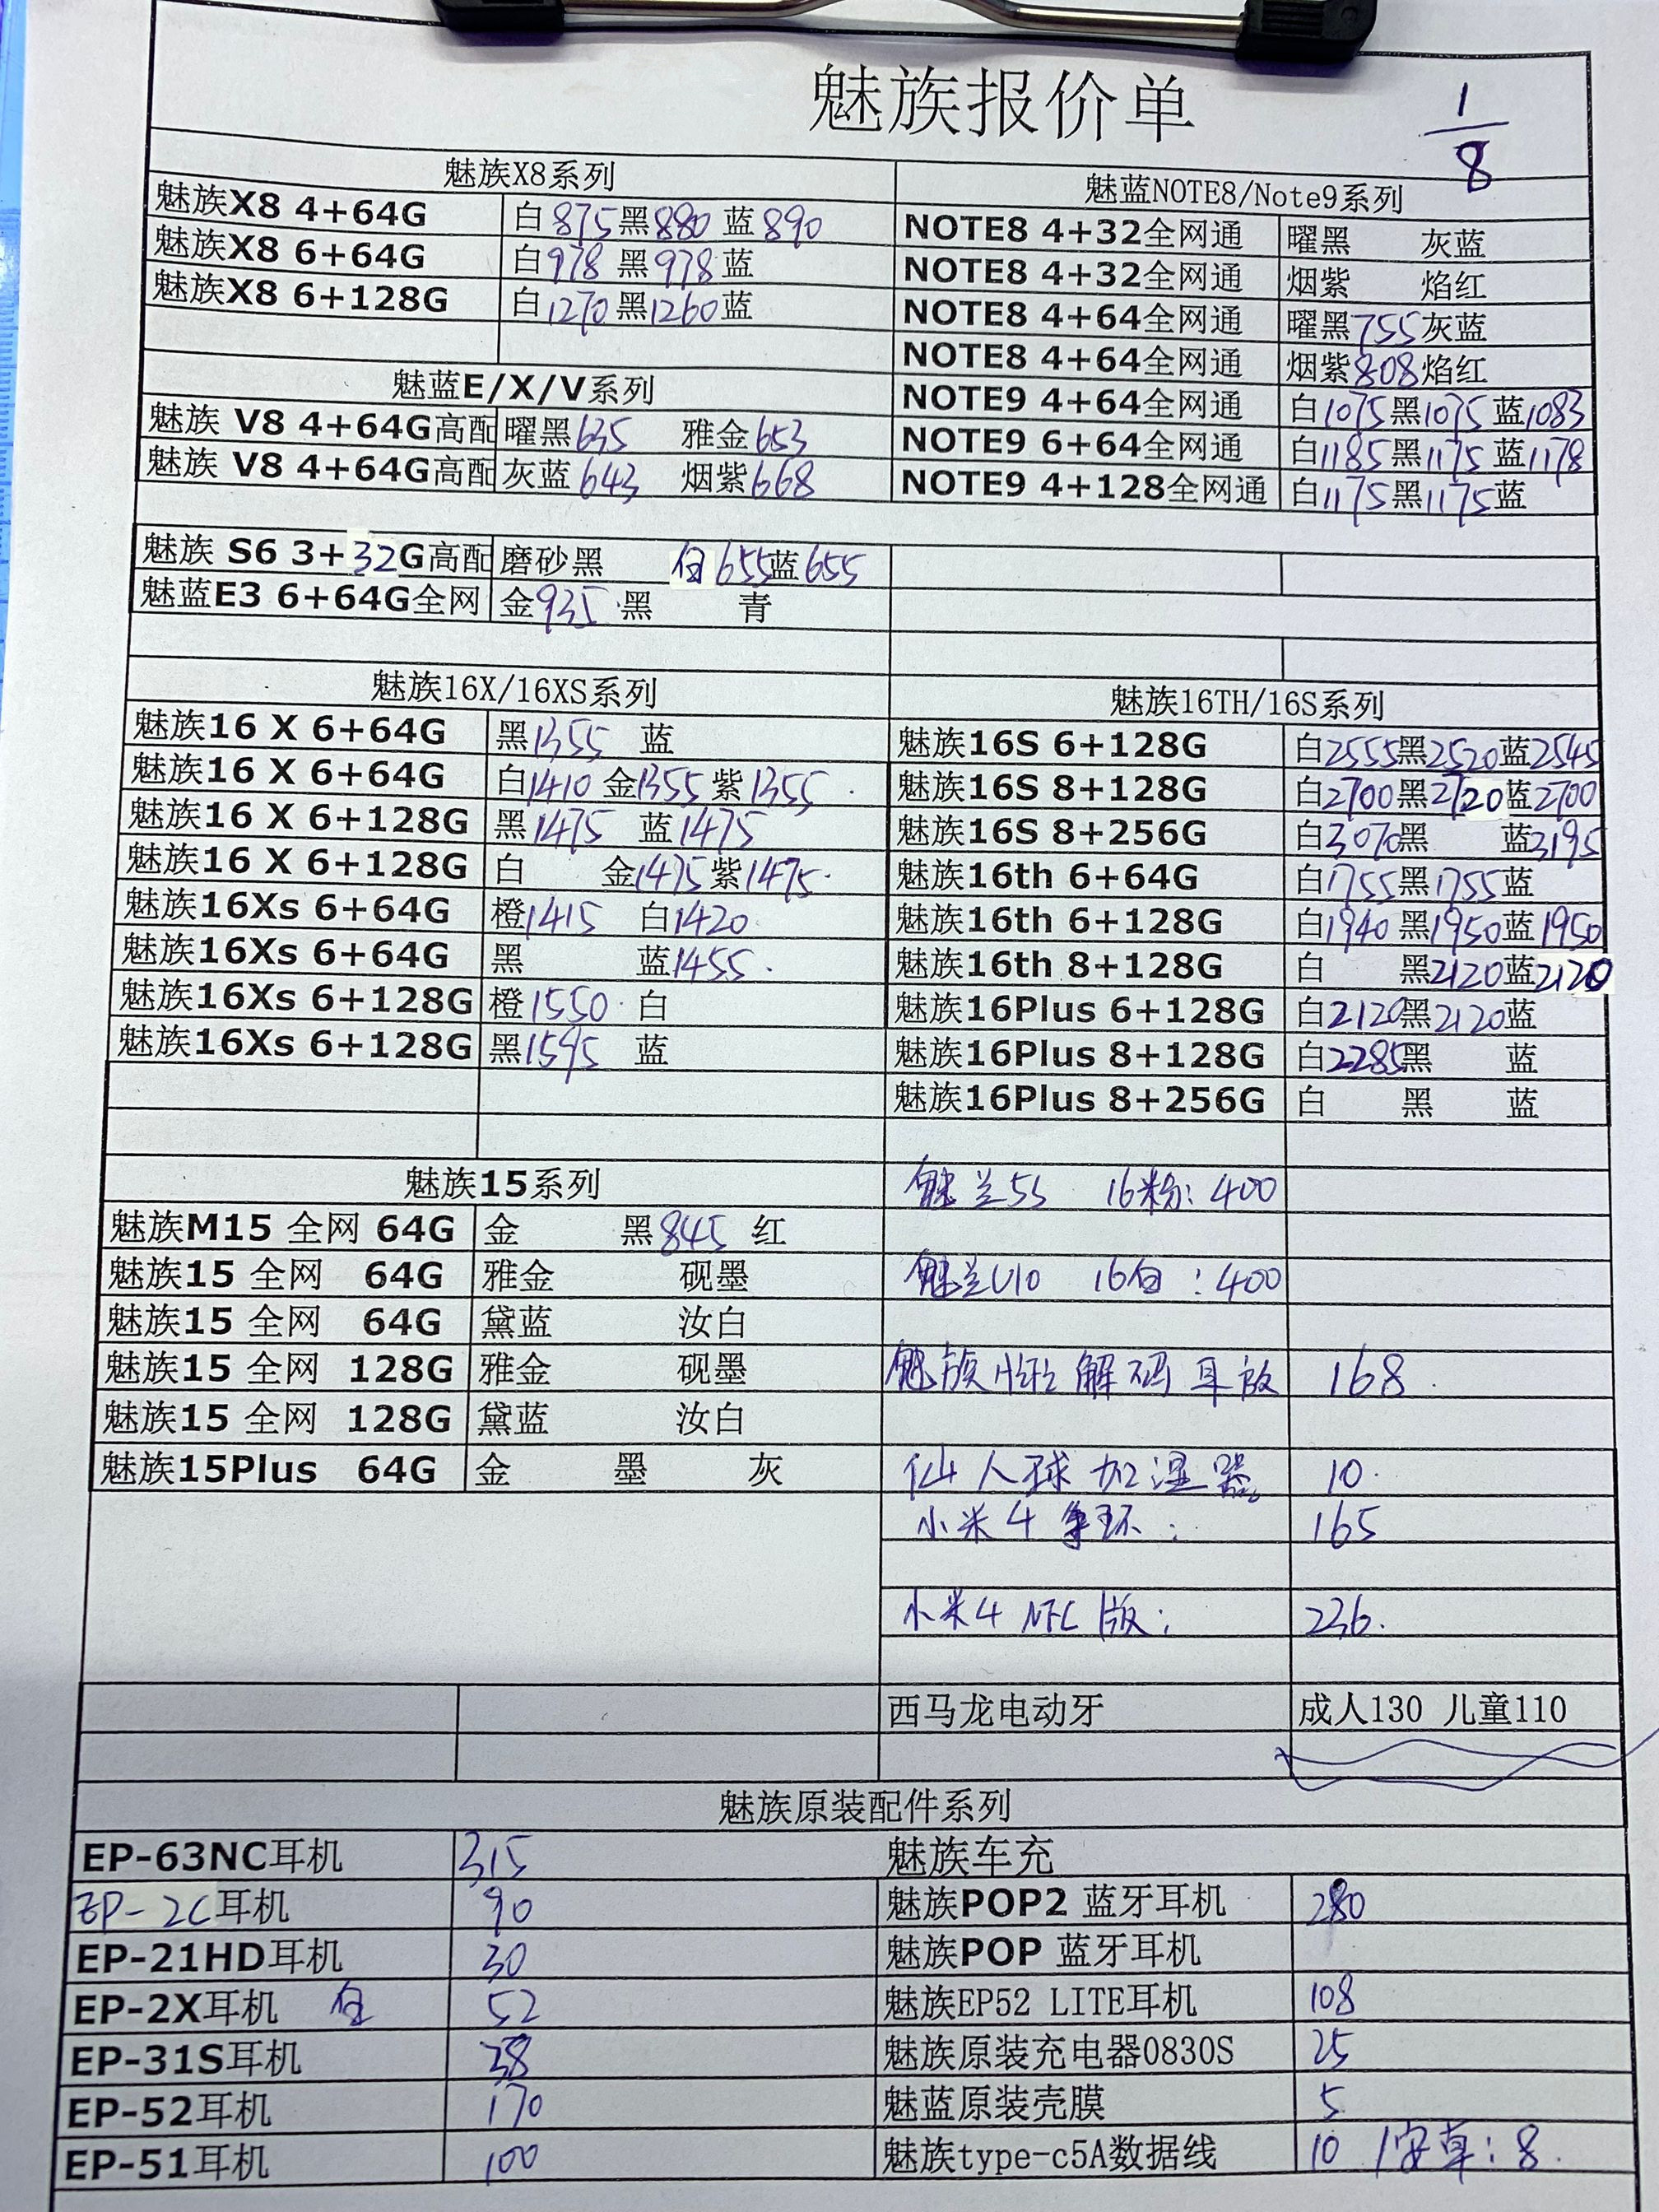 魅族报价单
1/8
魅族X8系列
魅族X8 4+64G 白875黑880 蓝890
魅族X8 6+64G 白978 黑978蓝
魅族X8 6+128G 白1270黑1260蓝
魅蓝E/X/V系列
魅族 V8 4+64G高配 曜黑635 雅金653
魅族 V8 4+64G高配 灰蓝643 烟紫668
魅族 S6 3+32G高配 磨砂黑 白655蓝655
魅蓝E3 6+64G全网 金935 黑 青
魅蓝NOTE8/Note9系列
NOTE8 4+32全网通 曜黑 灰蓝
NOTE8 4+32全网通 烟紫 焰红
NOTE8 4+64全网通 曜黑755灰蓝
NOTE8 4+64全网通 烟紫808焰红
NOTE9 4+64全网通 白1075黑1075蓝1083
NOTE9 6+64全网通 白1185黑1175蓝1178
NOTE9 4+128全网通 白1175黑1175蓝
魅族16X/16XS系列
魅族16 X 6+64G 黑1355 蓝
魅族16 X 6+64G 白1410 金1355 紫1355
魅族16 X 6+128G 黑1475 蓝1475
魅族16 X 6+128G 白 金1475 紫1475
魅族16Xs 6+64G 橙1415 白1420
魅族16Xs 6+64G 黑 蓝1455
魅族16Xs 6+128G 橙1550 白
魅族16Xs 6+128G 黑1595 蓝
魅族16TH/16S系列
魅族16S 6+128G 白2555黑2520蓝2545
魅族16S 8+128G 白2700黑2720蓝2700
魅族16S 8+256G 白3070黑 蓝3195
魅族16th 6+64G 白1755黑1755蓝
魅族16th 6+128G 白1940 黑1950蓝1950
魅族16th 8+128G 白 黑2120蓝2120
魅族16Plus 6+128G 白2120黑2120蓝
魅族16Plus 8+128G 白2285黑 蓝
魅族16Plus 8+256G 白 黑 蓝
魅族15系列
魅族M15 全网 64G 金 黑845 红
魅族15 全网 64G 雅金 砚墨
魅族15 全网 64G 黛蓝 汝白
魅族15 全网 128G 雅金 砚墨
魅族15 全网 128G 黛蓝 汝白
魅族15Plus 64G 金 墨 灰
魅兰5S 16粉: 400
魅兰U10 16白 : 400
魅族 解码耳放 168
仙人球加湿器 10
小米4手环: 165
小米4 NFC版: 236.
西马龙电动牙 成人130 儿童110
魅族原装配件系列
EP-63NC耳机 315 魅族车充
EP-2C耳机 90 魅族POP2 蓝牙耳机 280
EP-21HD耳机 30 魅族POP 蓝牙耳机
EP-2X耳机 白 52 魅族EP52 LITE耳机 108
EP-31S耳机 38 魅族原装充电器0830S 25
EP-52耳机 170 魅蓝原装壳膜 5
EP-51耳机 100 魅族type-c5A数据线 10 /安卓: 8.